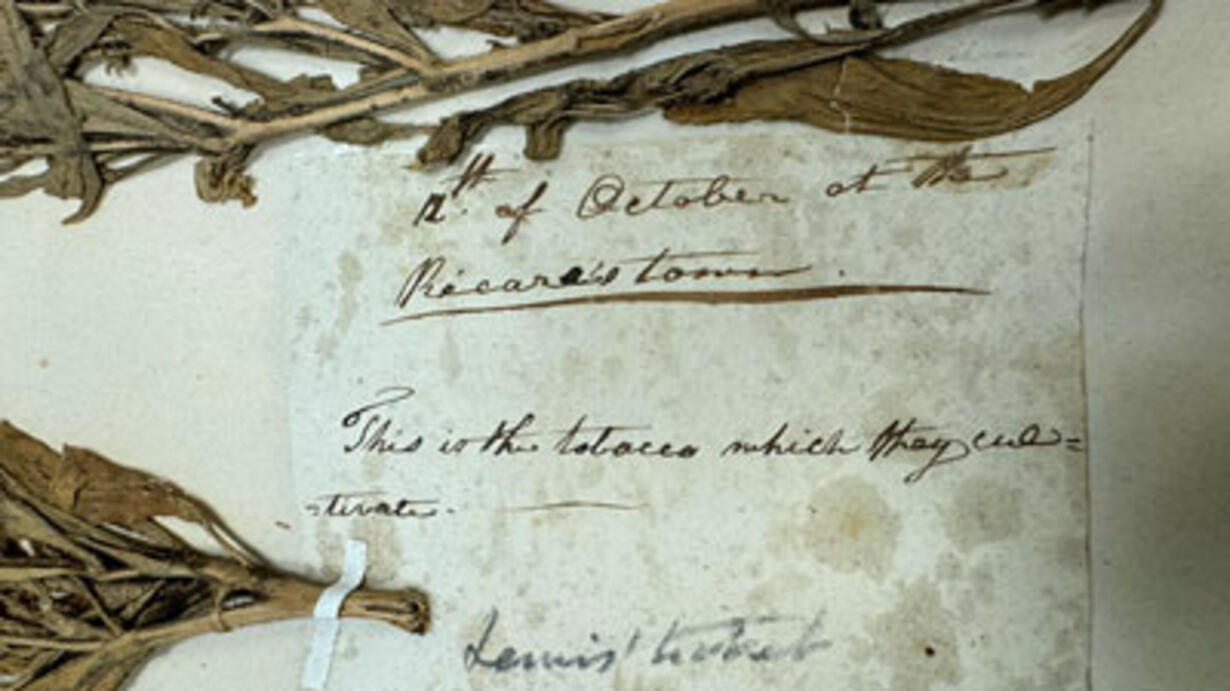 12th. of October at the
Ricara's town.
This is the tobacco which they cul=
-tivate.
Lewis' ticket